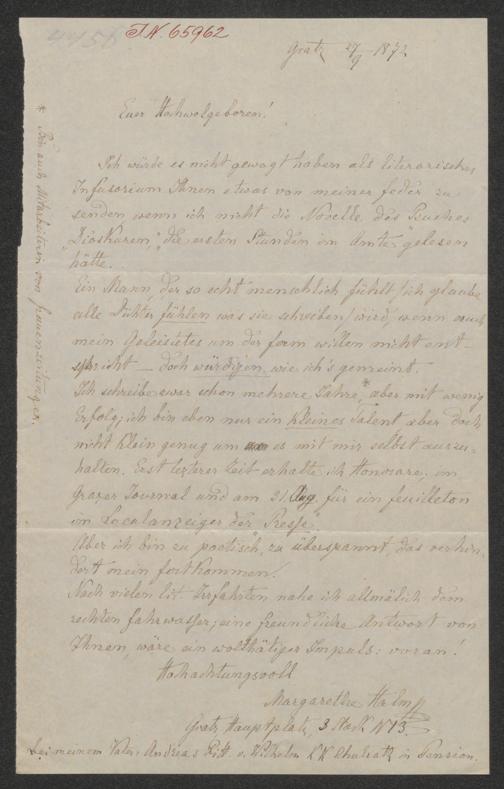 I.N. 65962
Gratz 27/9 1872
Euer Hochwolgeboren!
Ich würde es nicht gewagt haben als literarisches
Infusorium Ihnen etwas von meiner Feder zu
senden wenn ich nicht die Novelle des Buches
„Dioskuren", „die ersten Stunden im Amte" gelesen
hätte.
Ein Mann, der so echt menschlich fühlt, (ich glaube
alle Dichter fühlen was sie schreiben) wird, wenn auch
mein Geleistetes um der Form willen nicht ent-
spricht – doch würdigen, wie ich's gemeint.
Ich schreibe zwar schon mehrere Jahre,* aber mit wenig
Erfolg; ich bin eben nur ein kleines Talent, aber doch
nicht klein genug um es mit mir selbst auszu-
halten. Erst letzterer Zeit erhalte ich Honorare, im
Grazer Journal und am 31. Aug. für ein Feuilleton
im Localanzeiger der „Presse".
Aber ich bin zu poetisch, zu überspannt, das verhin-
dert mein Fortkommen.
Nach vielen lit. Irrfahrten nahe ich allmälich dem
rechten Fahrwasser; eine freundliche Antwort von
Ihnen, wäre ein wolthätiger Impuls: voran!
Hochachtungsvoll
Margarethe Halm
Gratz, Hauptplatz, 3 Stock N 13
bei meinem Vater, Andreas Ritt. v. in Pension.
* Bin auch Mitarbeiterin von Frauenzeitungen.